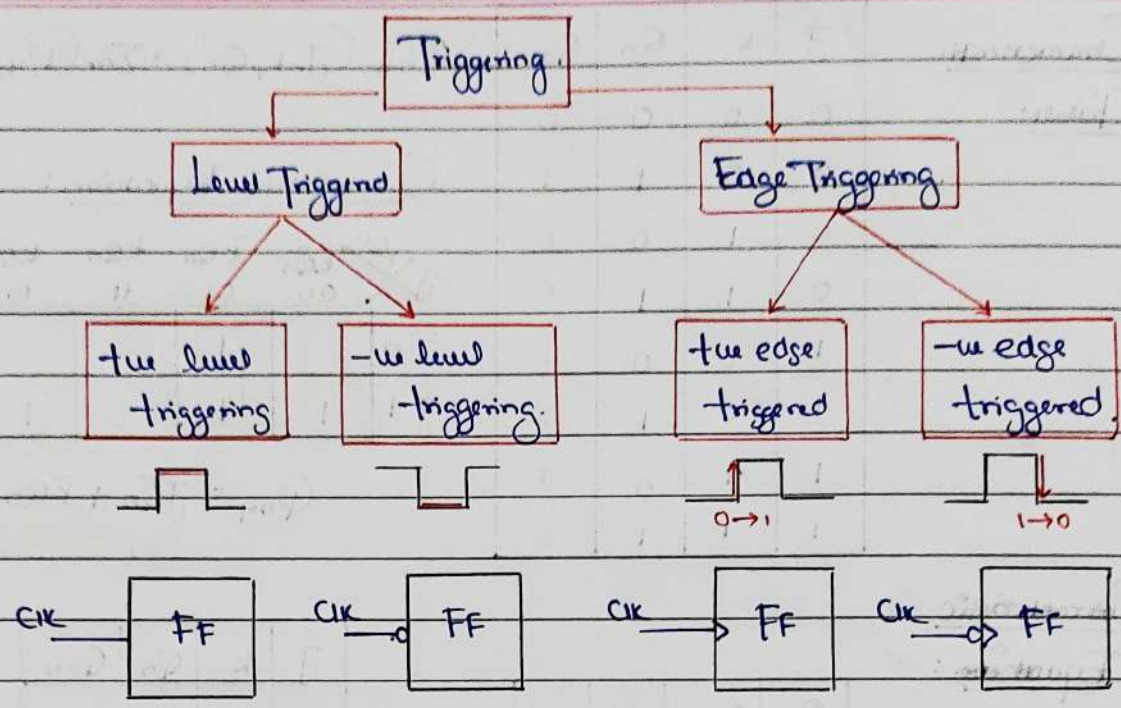 Triggering.
Level Triggered
Edge Triggering
+ve level
triggering
-ve level
triggering.
+ve edge
triggered
-ve edge
triggered.
0→1
1→0
Clk
FF
Clk
FF
Clk
FF
Clk
FF